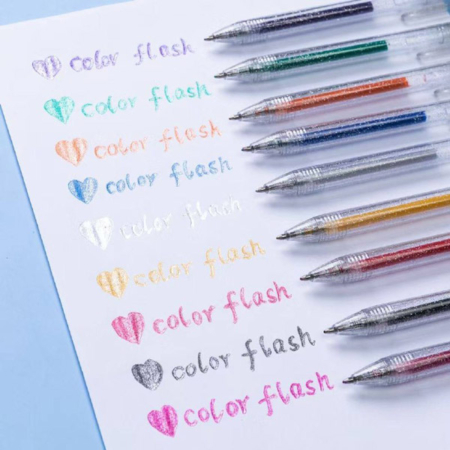 color flash
color flash
color flash
color flash
color flash
color flash
color flash
color flash
color flash